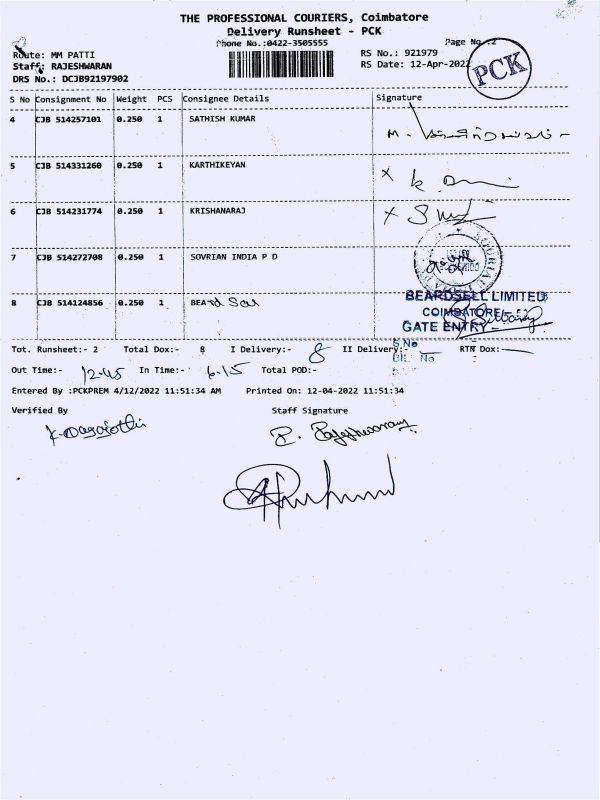 THE PROFESSIONAL COURIERS, Coimbatore
Delivery Runsheet - PCK
Phone No.:0422-3505555 Page No.:2
Route: MM PATTI RS No.: 921979
Staff: RAJESHWARAN RS Date: 12-Apr-2022 PCK
DRS No.: DCJB92197902
S No Consignment No Weight PCS Consignee Details Signature
4 CJB 514257101 0.250 1 SATHISH KUMAR
5 CJB 514331260 0.250 1 KARTHIKEYAN
6 CJB 514231774 0.250 1 KRISHANARAJ
7 CJB 514272708 0.250 1 SOVRIAN INDIA P D
8 CJB 514124856 0.250 1 BEARD Sal
BEARDSELL LIMITED
COIMBATORE
GATE ENTRY
S.No
Tot. Runsheet:- 2 Total Dox:- 8 I Delivery:- 8 II Delivery:- RTN Dox:-
Out Time:- 12-45 In Time:- 6.15 Total POD:-
Entered By :PCKPREM 4/12/2022 11:51:34 AM Printed On: 12-04-2022 11:51:34
Verified By Staff Signature